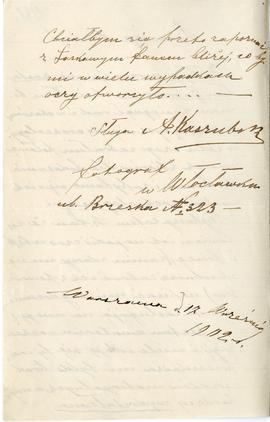 Chciałbym się przeto zapoznać
z Szanownym Panem bliżej, co by
mi w wielu wypadkach
oczy otworzyło. . . . —
Sługa A. Kaszubski
fotograf
w Włocławku
ul. Brzeska № 323 —
Warszawa d. 17 Września
1902 r.